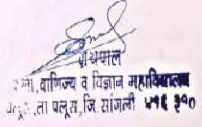 ग्रंथपाल
कला, वाणिज्य व विज्ञान महाविद्यालय
पलूस, ता पलूस, जि. सांगली ४१६ ३१०